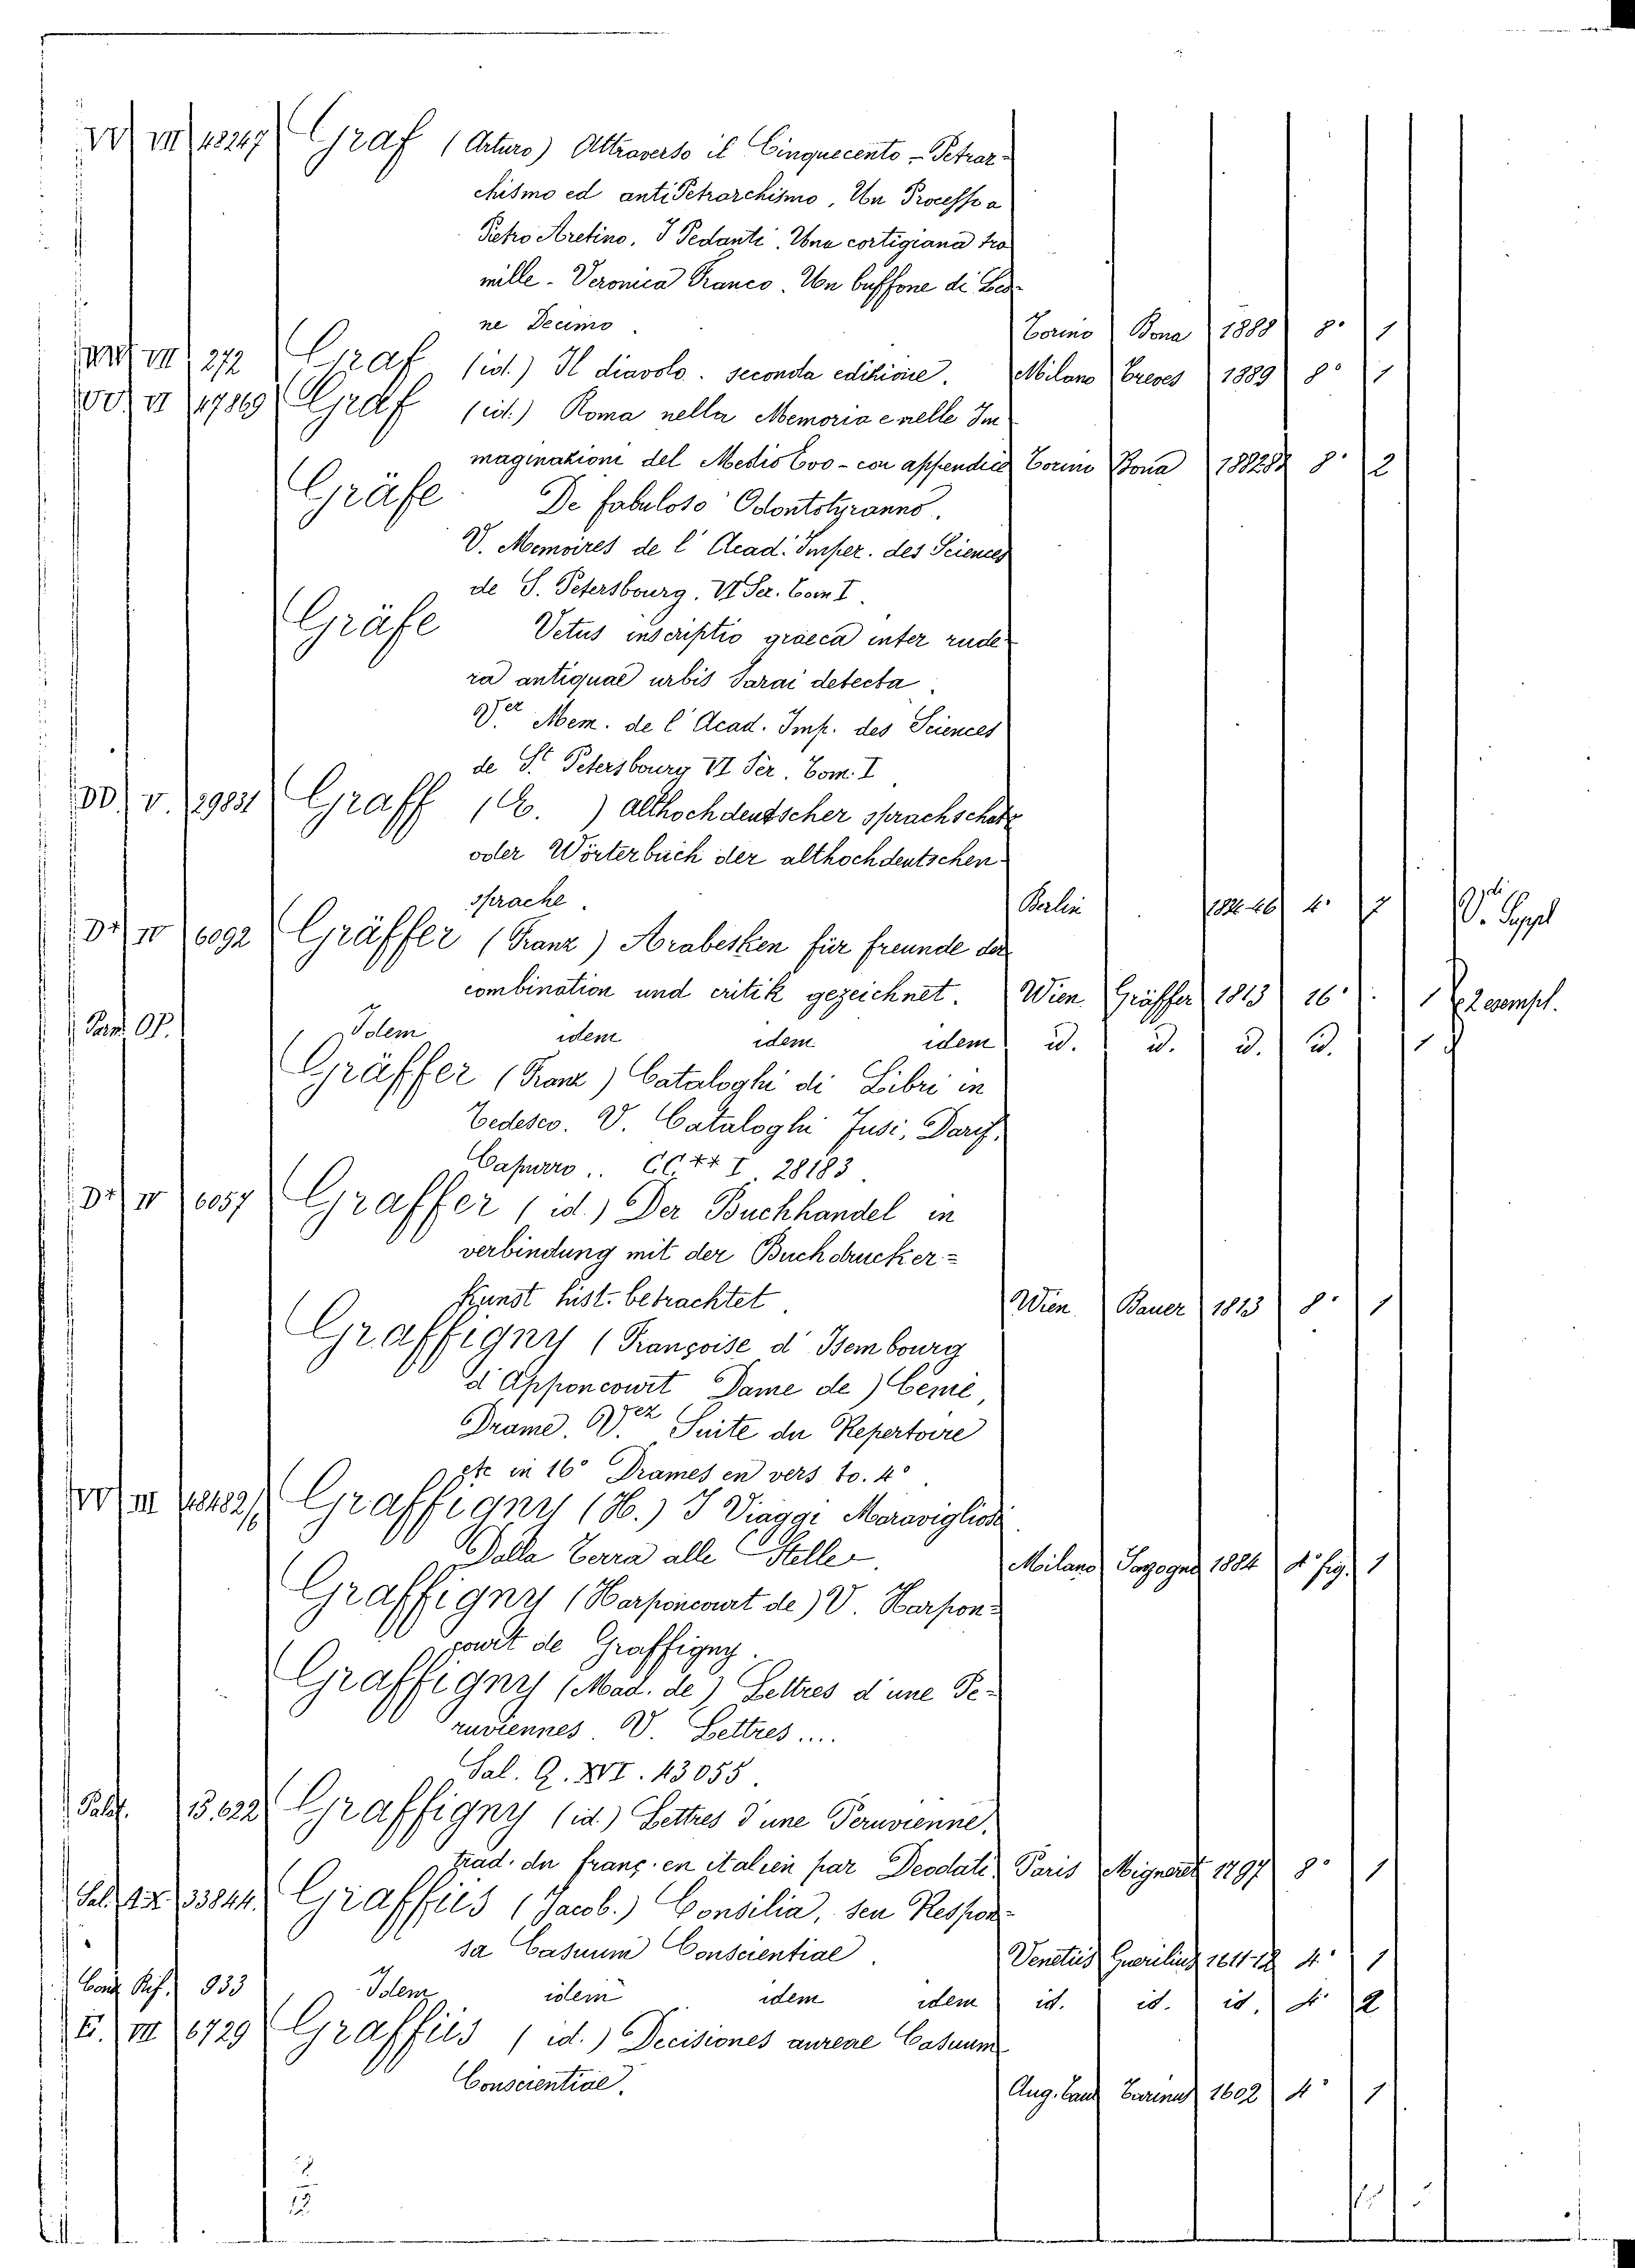 VV VIII 48247 Graf (Arturo) Attraverso il Cinquecento - Petrar-
chismo ed antiPetrarchismo. Un Processo a
Pietro Aretino. I Pedanti. Una cortigiana fra
mille - Veronica Franco. Un buffone di Leo-
ne Decimo. Torino Bona 1888 8° 1
VIII 272 Graf (id.) Il diavolo. seconda edizione. Milano Treves 1889 8° 1
VI 47869 Graf (id.) Roma nella Memoria e nelle Im
maginazioni del Medio Evo - con appendice Torino Bona 1882 8° 2
Gräfe De fabuloso Odontotyranno.
V. Memoires de l'Acad. Imper. des Sciences
de S. Petersbourg. VI Ser. Tom I.
Gräfe Vetus inscriptio graeca inter rude-
ra antiquae urbis Sarai detecta.
V.er Mem. de l'Acad. Imp. des Sciences
de St Petersbourg VI Ser. Tom. I
DD V. 29831 Graff (E. ) althochdeutscher sprachschatz
oder Wörterbuch der althochdeutschen
sprache. Berlin 4° 7 V. Suppl
IV 6092 Gräffer (Franz) Arabesken für freunde der
combination und critik gezeichnet. Wien Gräffer 1813 16° 1 2 esempl.
Idem idem idem idem id. id. id. id. 1
Gräffer (Franz) Cataloghi di Libri in
Tedesco. V. Cataloghi Jusi, Darif,
Capurro.. CC.** I. 28183
IV 6057 Graffer (id.) Der Buchhandel in
verbindung mit der Buchdrucker=
Kunst hist. betrachtet. Wien. Bauer 1813 8° 1
Graffigny (Françoise d'Isembourg
d'Apponcourt Dame de) Cenie,
Drame. V.ez Suite du Repertoire
etc in 16° Drames en vers to. 4°.
III 48482/6 Graffigny (H.) I Viaggi Maravigliosi
Dalla Terra alle Stelle. Milano Sonzogno 1884 4° fig. 1
Graffigny (Harponcourt de) V. Harpon=
court de Graffigny.
Graffigny (Mad. de) Lettres d'une Pe-
ruviennes. V. Lettres....
Sal. Q. XVI. 43055.
Palat. 15.622 Graffigny (id.) Lettres d'une Peruvienne.
trad. du franç. en italien par Deodati Paris Migneret 1797 8° 1
Sal. 33844. Graffiis (Jacob.) Consilia, seu Respon-
sa Casuum Conscientiae. Venetiis Guerilius 1611-12 4° 1
Cons. Rif. 933 Idem idem idem idem id. id. id. 4° 2
E. VIII 6729 Graffiis (id.) Decisiones aureae Casuum
Conscientiae. Aug. Taur Tarinus 1602 4° 1